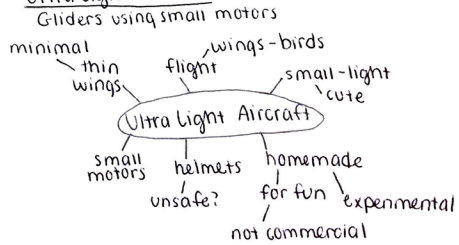 Gliders using small motors
minimal
thin
wings
flight
wings-birds
small-light
cute
Ultra Light Aircraft
small
motors
helmets
unsafe?
homemade
for fun
not commercial
experimental